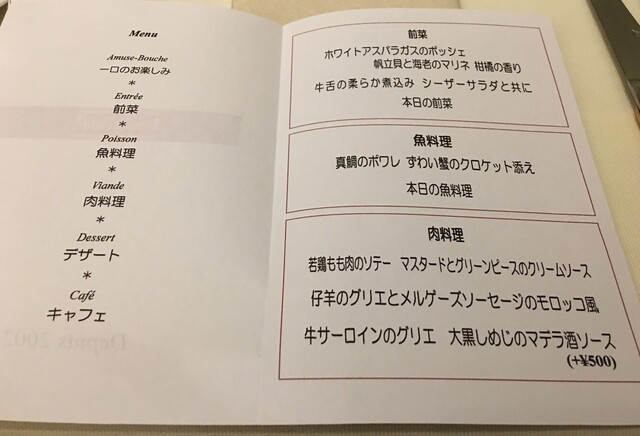 Menu
Amuse-Bouche
一口のお楽しみ
*
Entrée
前菜
*
Poisson
魚料理
*
Viande
肉料理
*
Dessert
デザート
*
Café
キャフェ
Depuis 2002
前菜
ホワイトアスパラガスのポッシェ
帆立貝と海老のマリネ 柑橘の香り
牛舌の柔らか煮込み シーザーサラダと共に
本日の前菜
魚料理
真鯛のポワレ ずわい蟹のクロケット添え
本日の魚料理
肉料理
若鶏もも肉のソテー マスタードとグリーンピースのクリームソース
仔羊のグリエとメルゲーズソーセージのモロッコ風
牛サーロインのグリエ 大黒しめじのマデラ酒ソース
(+¥500)